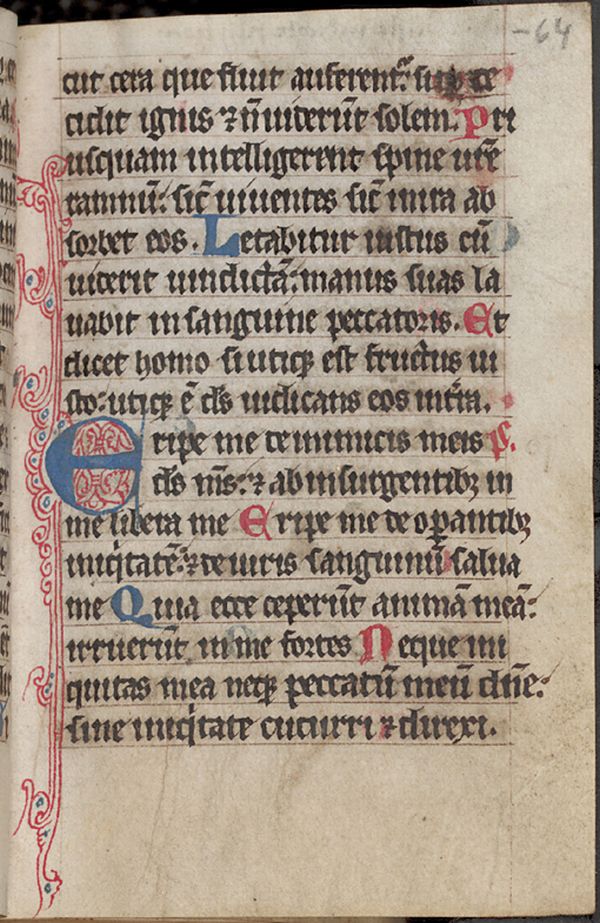 -64
cut cera que fluit auferent᷑: sup ce
cidit ignis ⁊ n̄ uiderūt solem. Pri
usquam intelligerent spine ur̄e
ramnū: sic̄ uiuentes sic̄ in ira ab
sorbet eos. Letabitur iustus cū
uiderit uindictā: manus suas la
uabit in sanguine peccatoris. Et
dicet homo si utiqꝫ est fructus iu
sto: utiqꝫ ē ds̄ iudicans eos in tr̄a.
Eripe me de inimicis meis p̄.
ds̄ ms̄: ⁊ ab insurgentibꝫ in
me libera me Eripe me de oꝑantibꝫ
iniqͥtatē: ⁊ de uiris sanguinū salua
me Quia ecce ceperūt animā meā:
irruerūt in me fortes Neque ini
quitas mea neqꝫ peccatū meū dn̄e:
sine iniqͥtate cucurri ⁊ direxi.